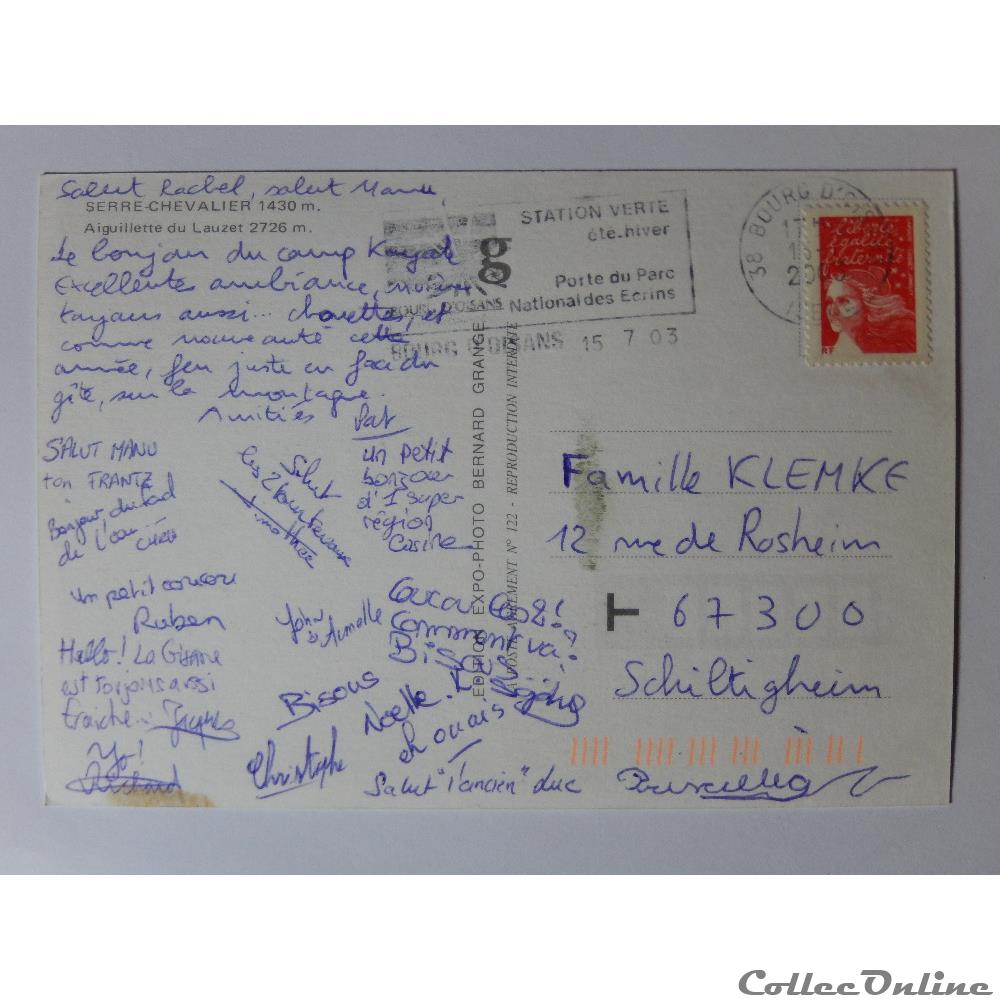 Salut Rachel, salut Manu,
SERRE-CHEVALIER 1430 m.
Aiguillette du Lauzet 2726 m.
Le bonjour du camp Kayak
Excellente ambiance,
toujours aussi... chouette, et
comme nouveauté cette
année, feu juste en face du
gîte, sur la montagne.
Amitiés Pat
SALUT MANU
ton FRANTZ
Bonjour, du
de l'eau
un petit coucou
Ruben
Hello! La Guisane
est toujours aussi
fraiche.. Jacques
Yo!
Richard
Salut
les 2
Timothée
un petit
bonjour
d'1 super
région
John
& Armelle
Coucou
Comment va?
Bisous
Bisous
Noelle.
Christophe
Salut "l'ancien" duc
EDITION EXPO-PHOTO BERNARD GRANGE
LA POSTE AGREMENT N° 122 - REPRODUCTION INTERDITE
g
BOURG D'OISANS
STATION VERTE
été.hiver
Porte du Parc
National des Ecrins
BOURG D'OISANS 15 7 03
38 BOURG D'OI
Liberté
égalité
fraternité
RF
Famille KLEMKE
12 rue de Rosheim
T 67300
Schiltigheim
CollecOnline